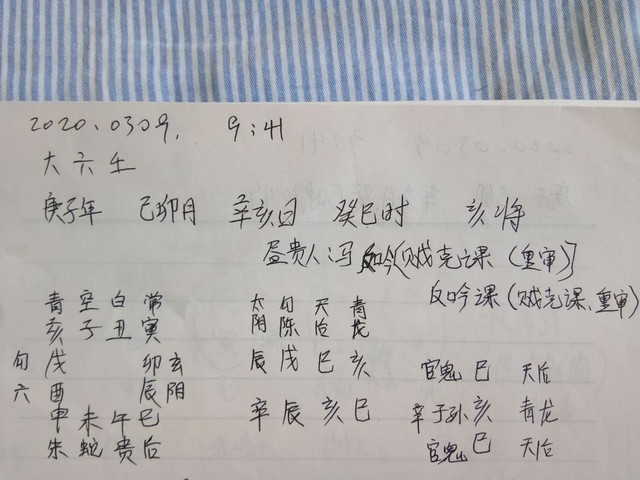 2020.0309. 9:41
大六壬
庚子年 己卯月 辛亥日 癸巳时 亥将
昼贵人:冯 反吟(贼克课(重审)]
反吟课(贼克课、重审)
青 空 白 常 太阴 勾陈 天后 青龙
亥 子 丑 寅 辰 戌 巳 亥
勾 戌 卯 玄 官鬼 巳 天后
六 酉 辰 阴 辛 辰 亥 巳 辛子孙 亥 青龙
申 未 午 巳 官鬼 巳 天后
朱 蛇 贵 后